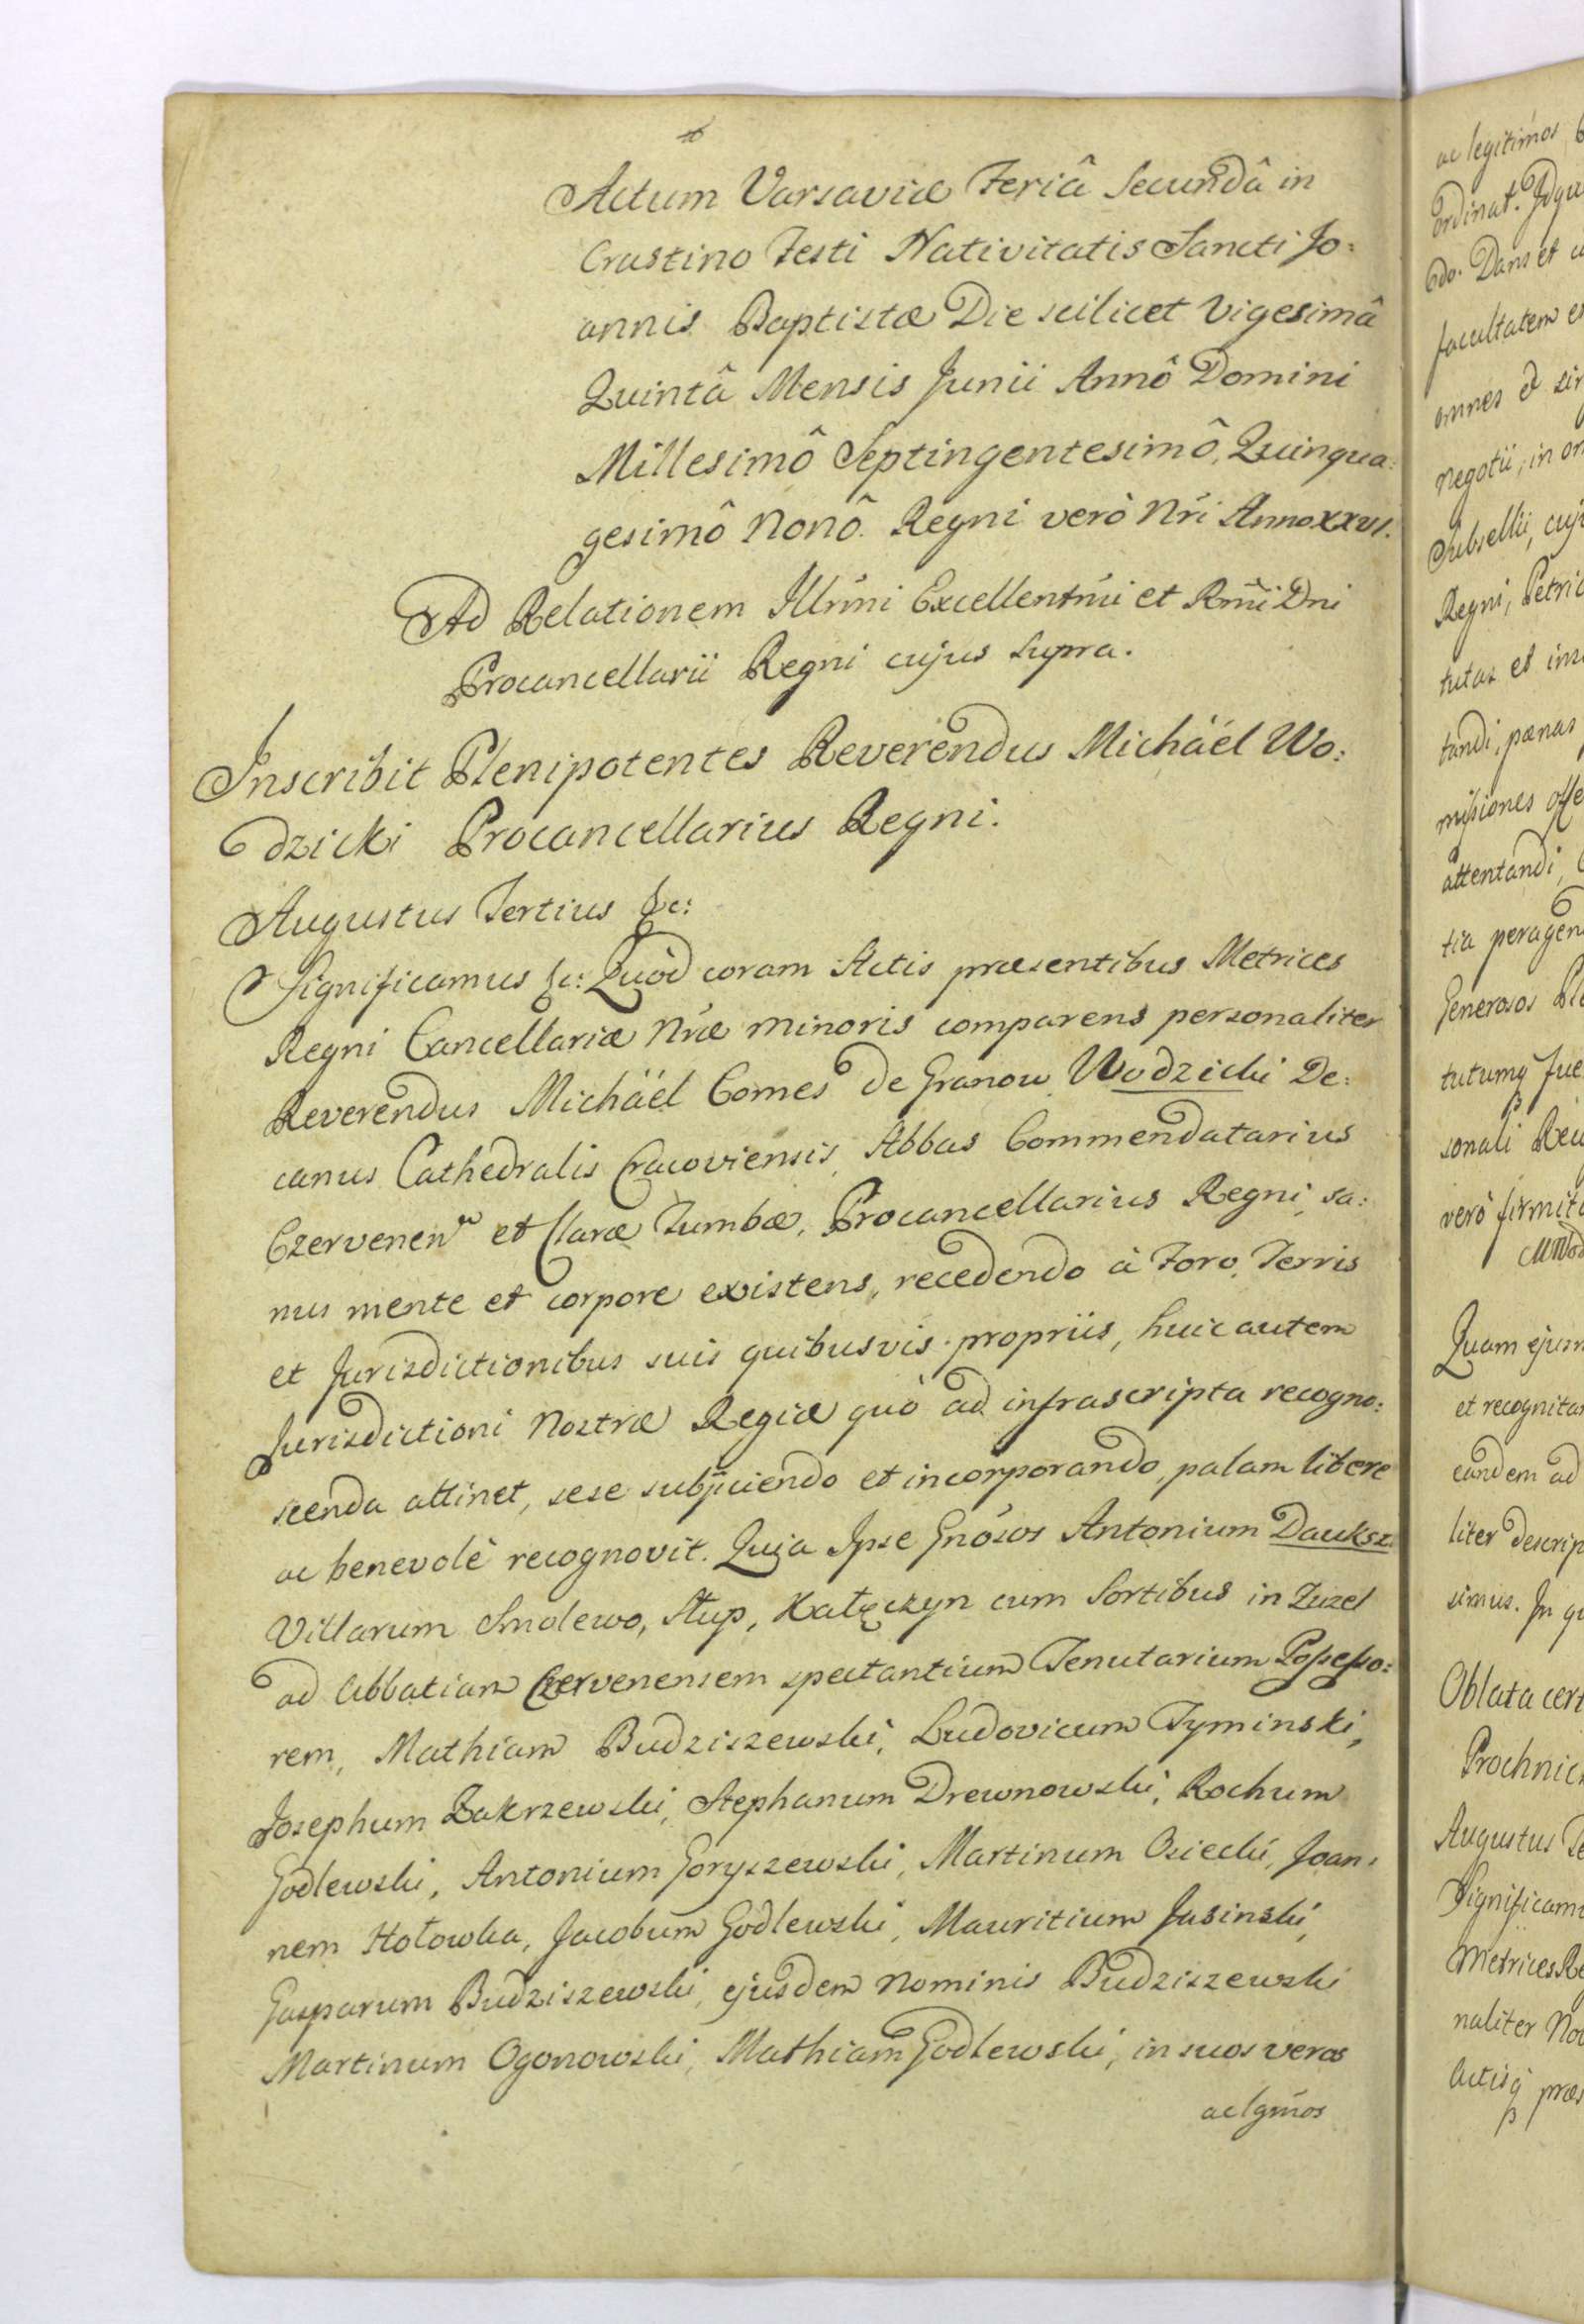 Actum Varsaviæ Feriâ Secundâ in
Crastino Festi Nativitatis Sancti Jo:
annis Baptistæ Die scilicet Vigesimâ
Quintâ Mensis Junii Annô Domini
Millesimô Septingentesimô, Quinqua:
gesimô Nonô. Regni verò Nri Anno XXVI.
Ad Relationem Illrmi Excellentmi et Rmi Dni
Procancellarii Regni cujus supra.
Inscribit Plenipotentes Reverendus Michäel Wo:
dzicki Procancellarius Regni.
Augustus Tertius &c:
Significamus &c: Quòd coram Actis præsentibus Metrices
Regni Cancellariæ Nræ minoris comparens personaliter
Reverendus Michäel Comes de Granow Wodzicki De:
canus Cathedralis Cracoviensis, Abbas Commendatarius
Czervenen et Claræ Tumbæ, Procancellarius Regni, sa:
nus mente et corpore existens, recedendo à Foro, Terris
et Jurisdictionibus suis quibusvis propriis, huic autem
Jurisdictioni Nostræ Regiæ quò ad infrascripta recogno:
scenda attinet, sese subjiciendo et incorporando, palam libere
ac benevolè recognovit. Quia Ipse Gnosos Antonium Dauksz.
Villarum Smolewo, Stup, Kałęczyn cum Sortibus in Zuzel
ad Abbatiam Czervenensem spectantium Tenutarium Possesso:
rem, Mathiam Budziszewski, Ludovicum Tyminski,
Josephum Zakrzewski, Stephanum Drewnowski, Rochum
Godlewski, Antonium Goryszewski, Martinum Osiecki, Joan:
nem Hołowka, Jacobum Godlewski, Mauritium Jasinski,
Gasparum Budziszewski, ejusdem Nominis Budziszewski
Martinum Ogonowski, Mathiam Godlewski, in suos veros
ac lgmos
ac legitimos
ordinat. Idqu
do. Dans et
facultatem
omnes &
negotii, in
Subsellii, cuj
Regni,
tutas et
tandi, pœnas
missiones
attentandi,
tia
Generosos
tutumq
sonali
verò
Quam
et recognita
eandem ad
liter descrip
simus. In
Oblata cert
Prochnic
Augustus
Significam
Metrices
naliter
Actisq præ